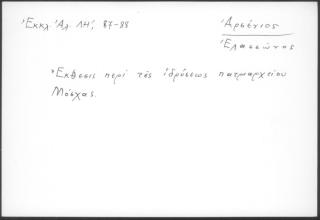 Ἐκκλ. Ἀλ. ΛΗ', 87-88
Ἀρσένιος
Ἐλασσῶνος
Ἔκθεσις περὶ τῆς ἱδρύσεως πατριαρχείου
Μόσχας.